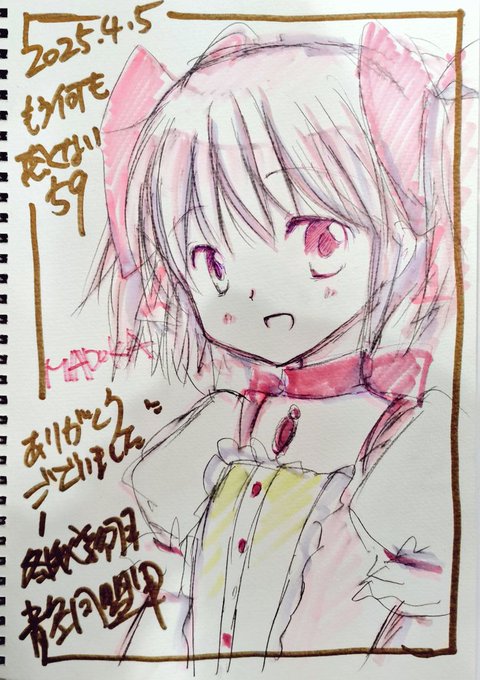 2025.4.5
もう何も
恐くない
59
MADOKA
ありがとう
ございました
同盟軍